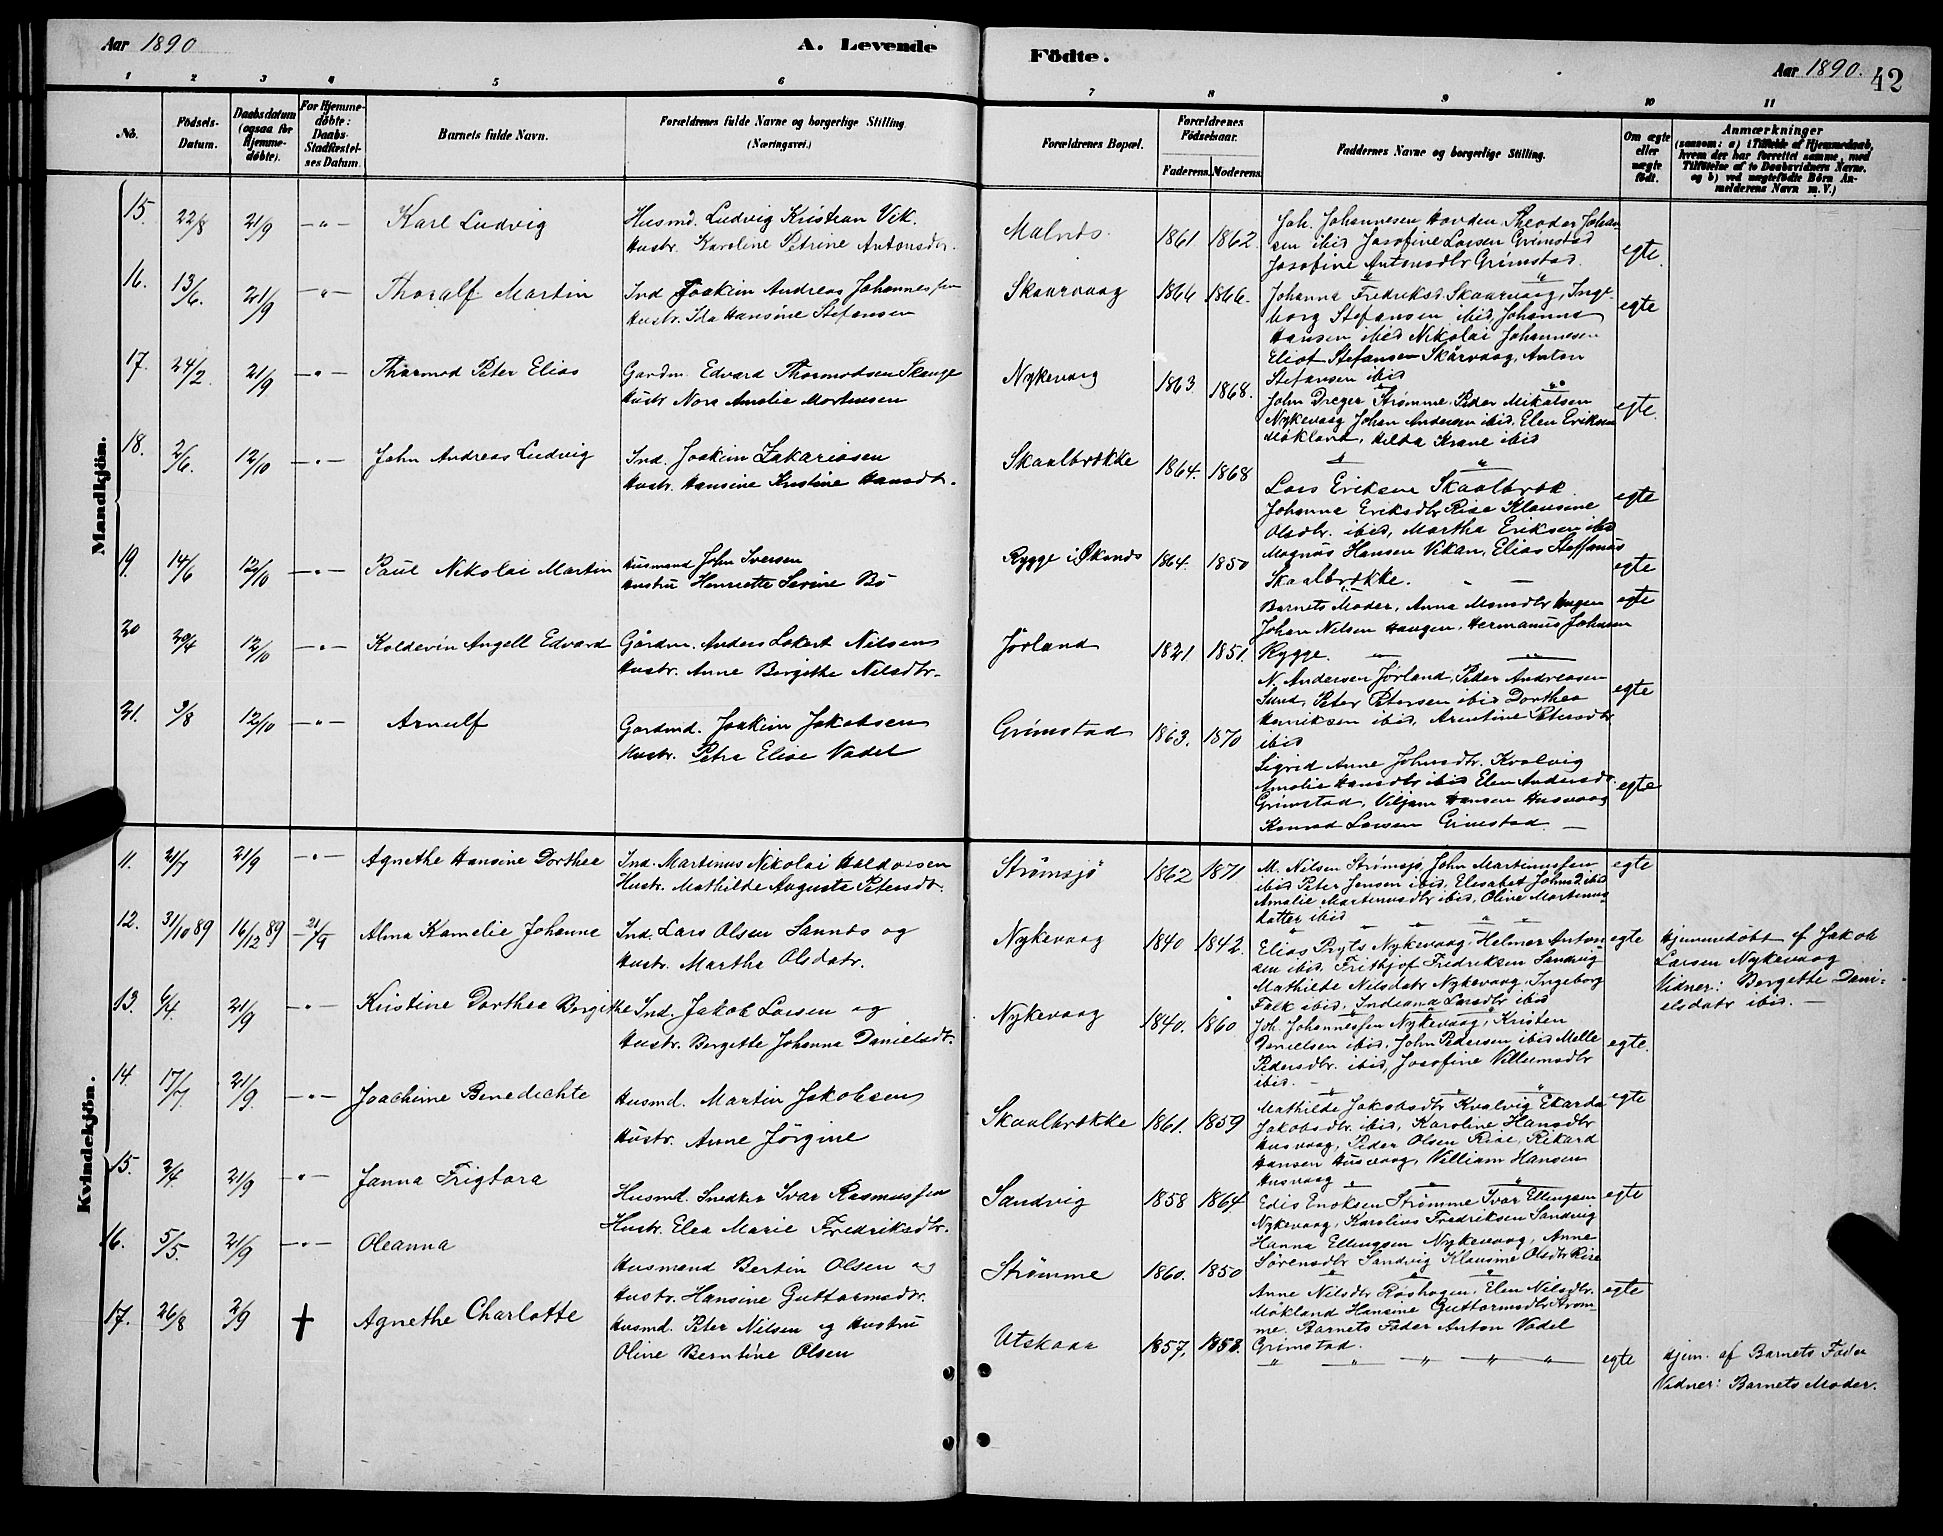 Aar 1890
A. Levende
1 2 3 4 5 6
No. Födsels-Datum. Daabsdatum (ogsaa for Hjemme-døbte). For Hjemme-döbte: Daabs-Stadfæstel-ses Datum. Barnets fulde Navn. Forældrenes fulde Navne og borgerlige Stilling (Næringsvei.)
Mandkjön.
15. 22/8 21/9 -"- Karl Ludvig Husmd. Ludvig Kristian Vik.
Hustr. Karoline Petrine Antonsdtr.
16. 13/6. 21/9 -"- Thoralf Martin Ind Joakim Andreas Johannessen
Hustr. Ida Hansine Stefansen
17. 24/2. 21/9 -"- Thormod Peter Elias Gardm. Edvard Thormodsen Skauge
Hustr Nora Amalie Mortensen
18. 2/6. 12/10 -"- John Andreas Ludvig Ind. Joakim Zakariasen
Hustr. Hansine Kristine Hansdtr.
19. 14/6 12/10 -"- Paul Nikolai Martin Husmand John Iversen
Hustru Henriette Serine Bö
20 20/4 12/10 -"- Koldevin Angell Edvard Gårdm. Anders Lokert Nilsen
Hustr. Anne Bergitte Nilsdtr.
21. 3/8 12/10 -"- Arnulf Gardmd. Joakim Jakobsen
Hustr. Petra Elise Vadel
Kvindekjön.
11. 21/7 21/9 -"- Agnethe Hansine Dorthea Ind. Martinus Nikolai Haldorsen
Hustr. Mathilde Augusta Petersdtr.
12. 31/10 89 16/12 89 21/9 Alma Kamelie Johanne Ind. Lars Olsen Sannes og
Hustr. Martha Olsdatr.
13. 6/4. 21/9 -"- Kristine Dorthea Bergithe Ind. Jakob Larsen og
Hustr. Bergette Johanna Danielsdtr.
14. 17/7 21/9. -"- Joachime Benedichte Husmd. Martin Jakobsen
Hustr. Anne Jörgine
15. 2/4. 21/9 -"- Janna Frigtora Husmd. Snedker Ivar Rasmussen
Hustr. Elea Marie Fredriksdtr.
16. 5/5. 21/9 -"- Oleanna Husmand Bertin Olsen og
Hustr. Hansine Guttormsdtr.
17. 26/8 2/9 † Agnethe Charlotte Husmd. Peter Nilsen og Hustru
Oline Berntine Olsen
Födte.
Aar 1890. 42
7 8 9 10 11
Forældrenes Bopæl. Forældrenes Födselsaar. Faderens. Moderens. Faddernes Navne og borgerlige Stilling. Om ægte eller uægte födt. Anmærkninger
(saasom: a) i Tilfælde af Hjemmedaab, hvem der har forrettet samme, med Tilföielse af to Daabsvidners Navne. og b) ved uægtefödte Börn An-melderens Navn m. V.)
Malnes. 1861 1862. Joh. Johannesen Hovden Theodor Johan
sen ibid Josofine Larsen Grimstad
Josofine Antonsdtr Grimstad. egte.
Skaarvaag 1864 1866. Johanna Fredriksd. Skaarvaag, Inge
borg Stefansen ibid, Johanna egte
Hansen ibid Nikolai Johannesen
Eliot Stefansen Skårvaag, Anton
Stefansen ibid
Nykevaag 1863 1868. John Dreyer Strömme. Peder Mikalsen
Nykevaag Johan Andersen ibid, Elen Eriksen egte.
Mökland, Hilda Krane ibid
Skaalbrække 1864. 1868 Lars Eriksen Skaalbræk
Johanna Eriksdtr Rise Klausine egte
Olsdtr. ibid, Martha Eriksen ibid
Magnus Hansen Vikan, Elias Steffanus
Skaalbrække. egte
Rygge i Öksnes 1864. 1850 Barnets Moder, Anna Monsdtr Haugen egte
Johan Nilsen Haugen, Hermanus Johnsen
Rygge.
Jörland 1821 1851. N. Andersen Jörland, Peder Andreasen
Sund, Peter Petersen ibid Dorthea egte
Henriksen ibid, Arntine Petersdtr
ibid
Grimstad 1863. 1870 Sigrid Anne Johnsdtr. Kvalvig
Amalie Hansdtr ibid Elen Andersdtr.
Grimstad, Viljam Hansen Husvaag egte
Konrad Larsen Grimstad.
Strömsjö 1862 1871 M. Nilsen Strömsjö, John Martinussen egte
ibid Peter Jensen ibid, Elisabet Johnsd. ibid
Amalie Martinusdtr ibid, Oline Martinus-
datter ibid
Nykevaag 1840 1842. Elias Pryts Nykevaag, Helmer Anton- egte
sen ibid, Frithjof Fredriksen Sandvig
Mathilde Nilsdatr Nykevaag, Ingeborg
Falk ibid, Indiana Larsdtr ibid
Hjemmedöbt af Jakob
Larsen Nykevaag
Vidner: Bergette Dani-
elsdatr ibid. —
Nykevaag 1840. 1860 Joh. Johannessen Nykevaag, Kristen
Danielsen ibid, John Pedersen ibid Melle
Pedersdtr. ibid, Josofine Villumsdtr egte.
ibid. —
Skaalbrække 1861. 1859 Mathilde Jakobsdtr Kvalvig Ekarda egte
Jakobsdtr. ibid, Karoline Hansdtr
Husvaag, Peder Olsen Rise, Rikard
Hansen Husvaag, Villiam Hansen
Husvaag
Sandvig 1858 1864. Edis Enoksen Strömme Ivar Ellingsen egte
Nykevaag, Karolius Fredriksen Sandvig
Hanna Ellingsen Nykevaag, Anne
Sörensdtr Sandvig Klausine Olsdtr Rise
Strömme 1860. 1850 Anne Nilsdtr Röshagen, Elen Nilsdtr. egte
Mökland Hansine Guttormsdtr Ström-
me. Barnets Fader Anton Vadel
Grimstad.
Utskaar 1857. 1858. " — " — " — " — " egte
Hjem. af Barnets Fader
Vidner: Barnets Moder.